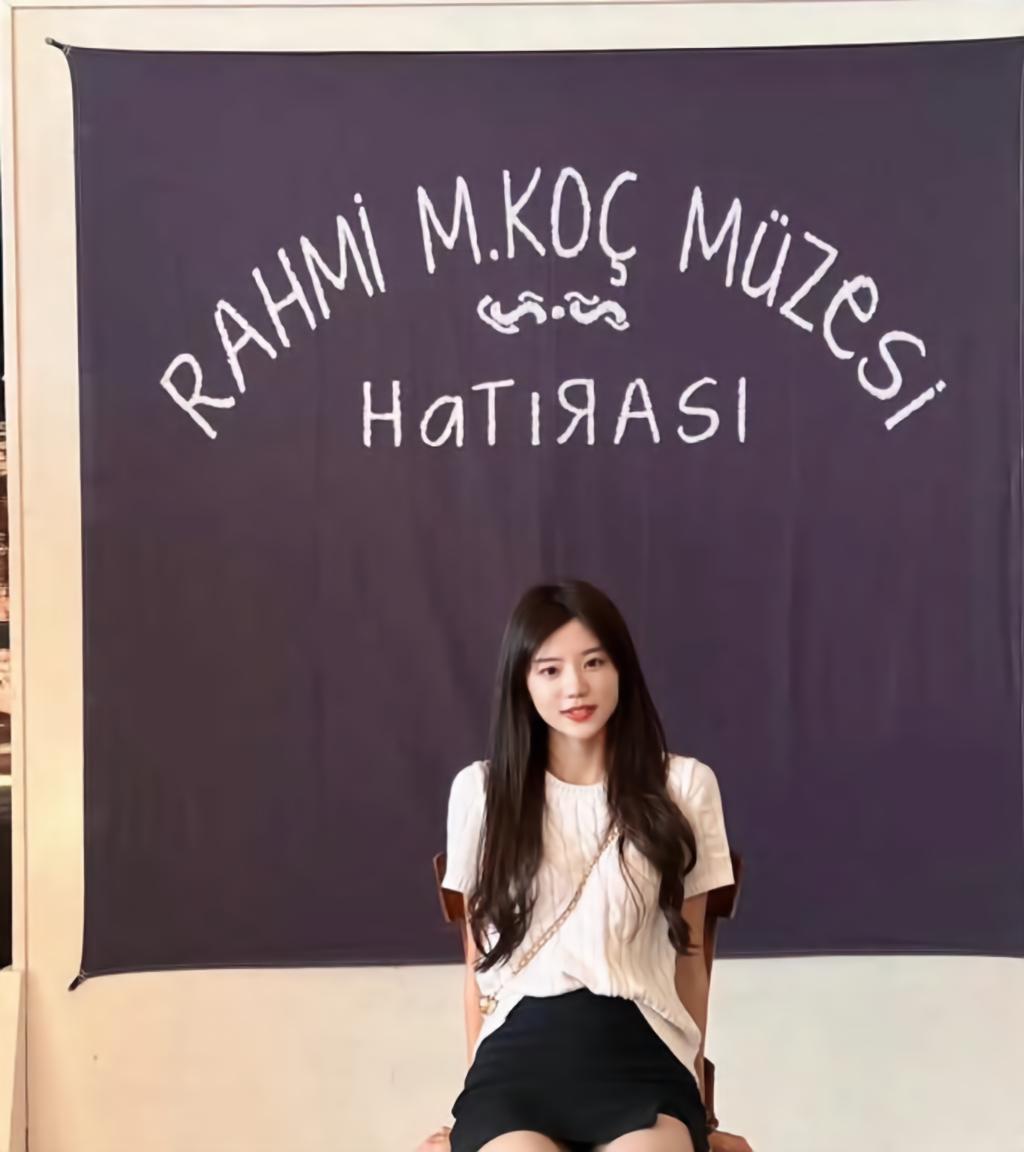 RAHMİ M.KOÇ MÜZeSİ
HaTIЯASI